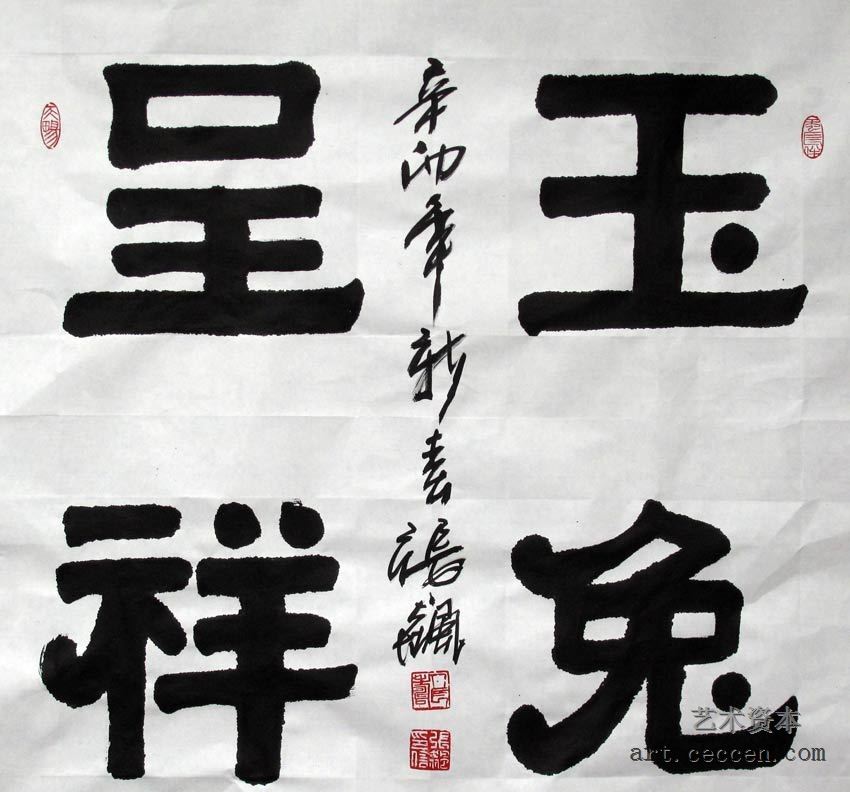 玉兔
呈祥
辛卯年新春張
艺术资本
art.ceccen.com